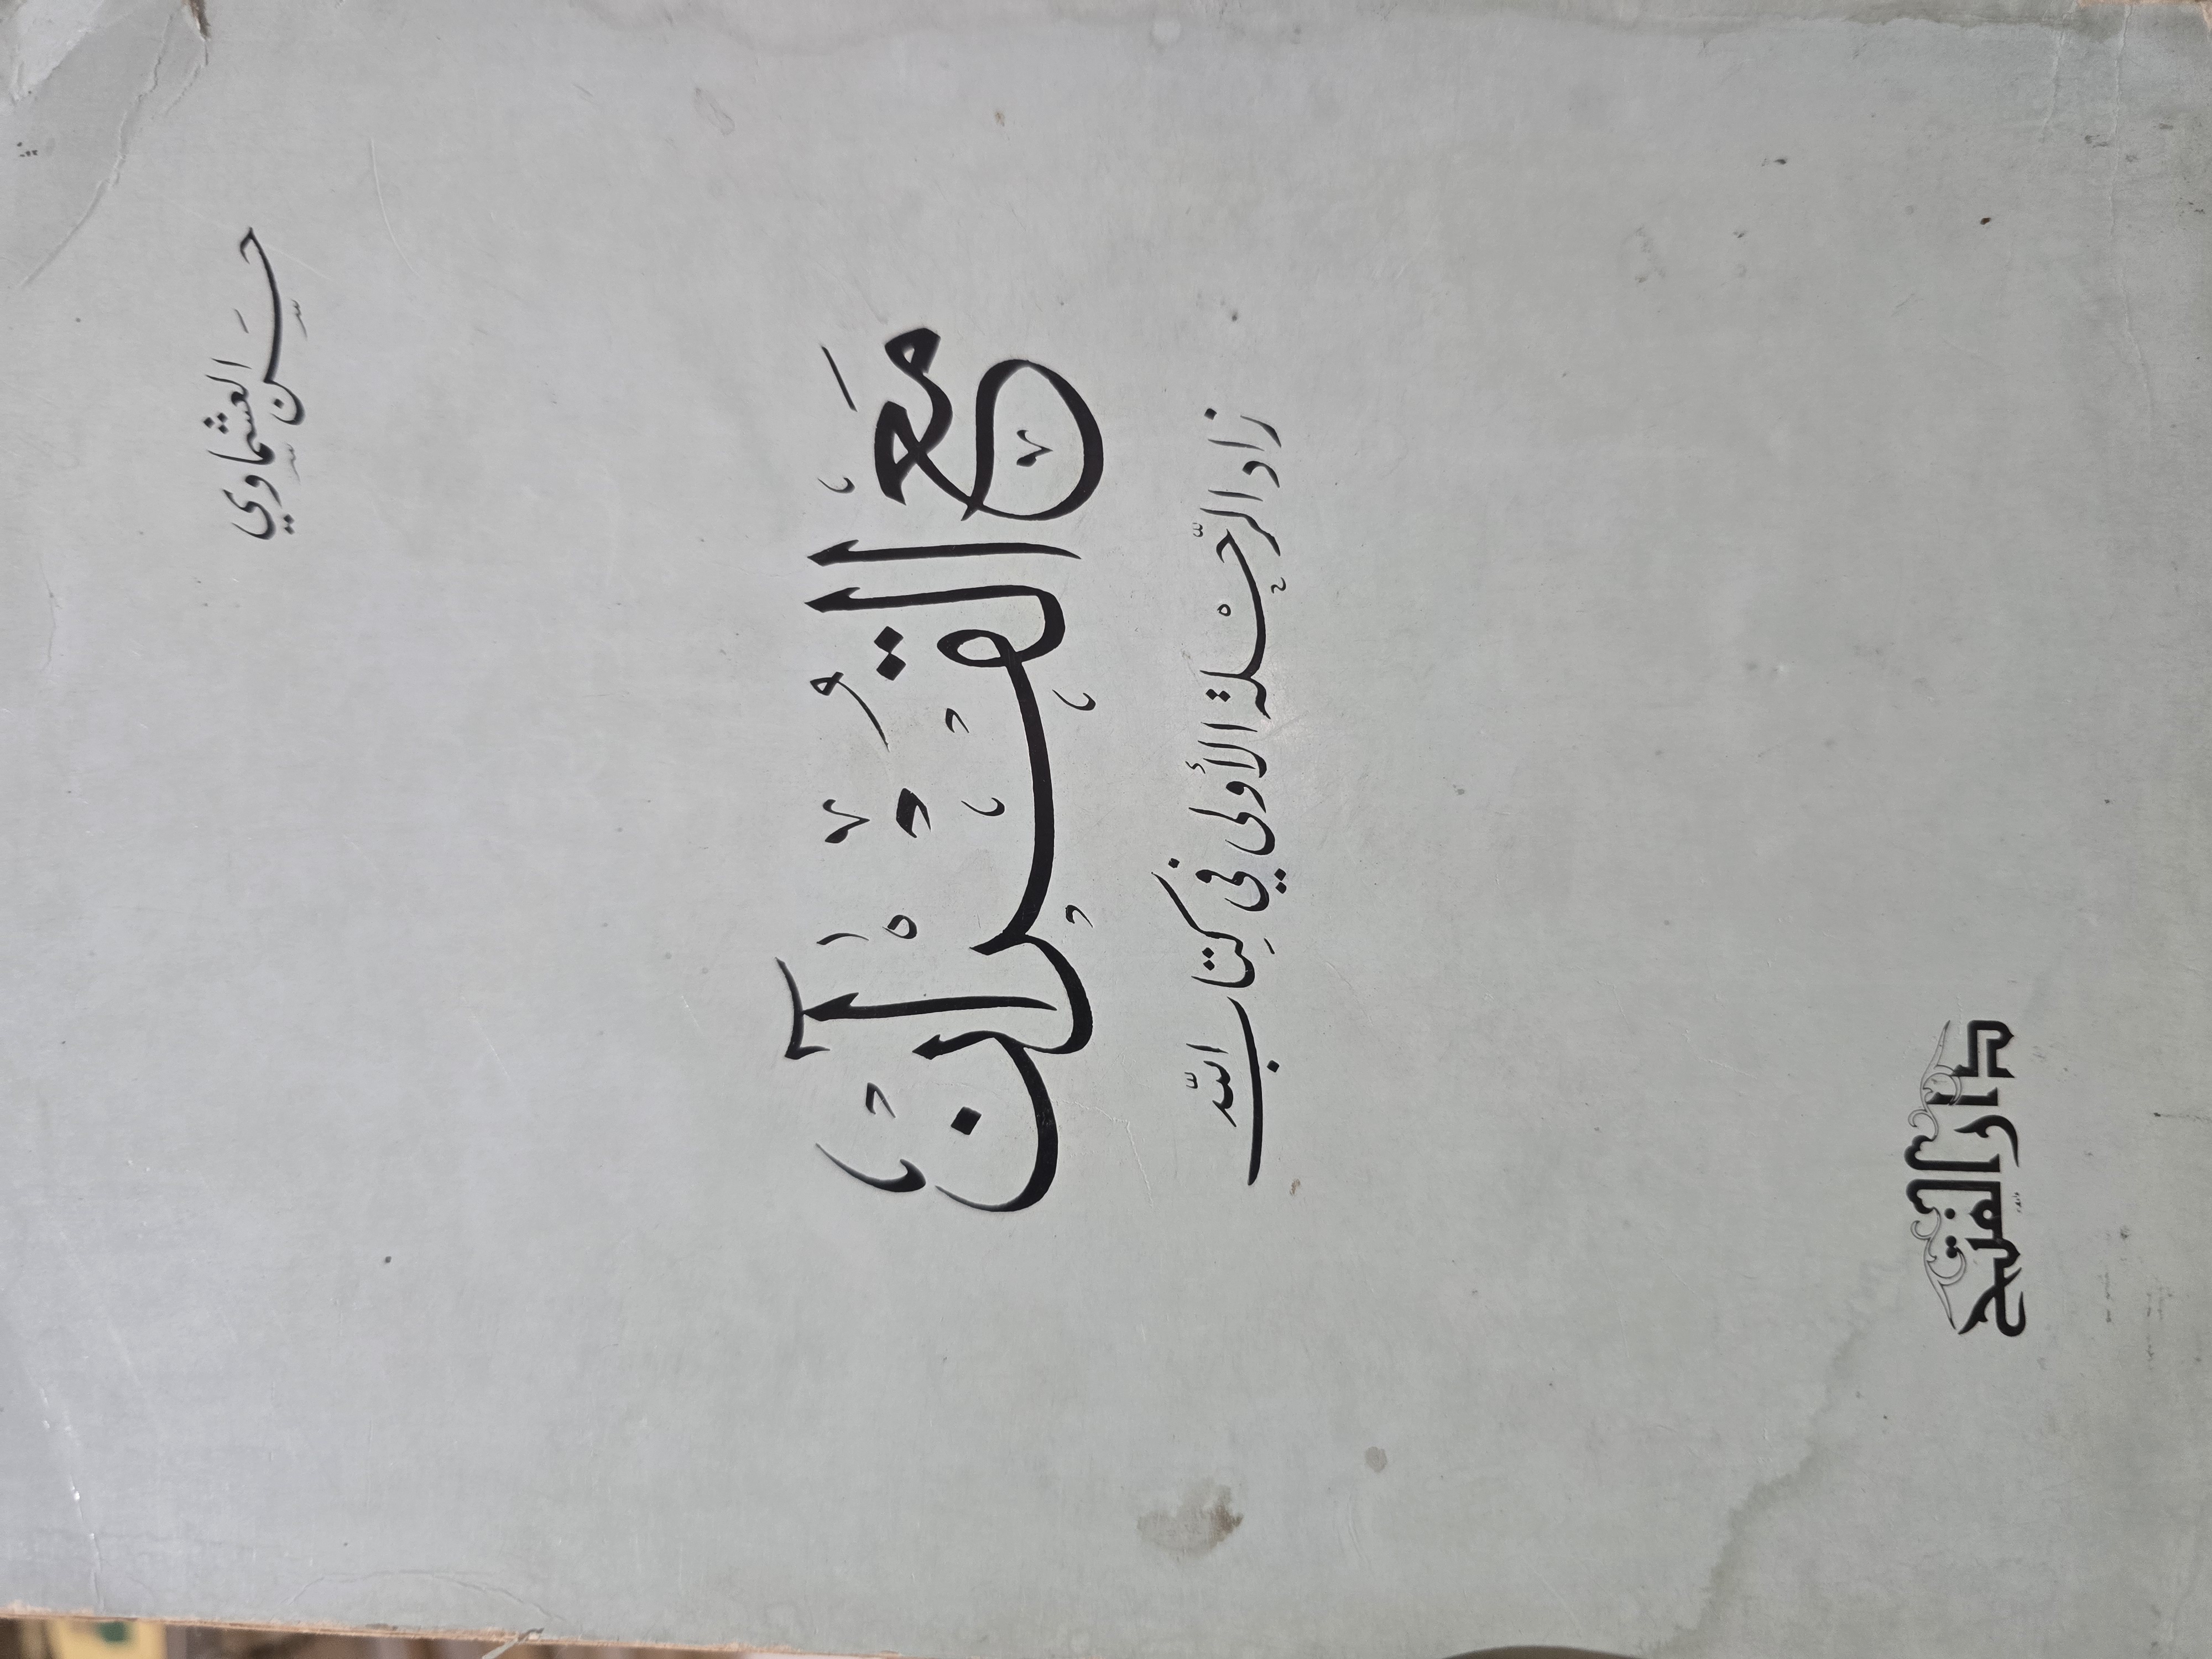 حسن العشماوي
مع القرآن
زاد الرحلة الأولى في كتاب الله
دار الفتح